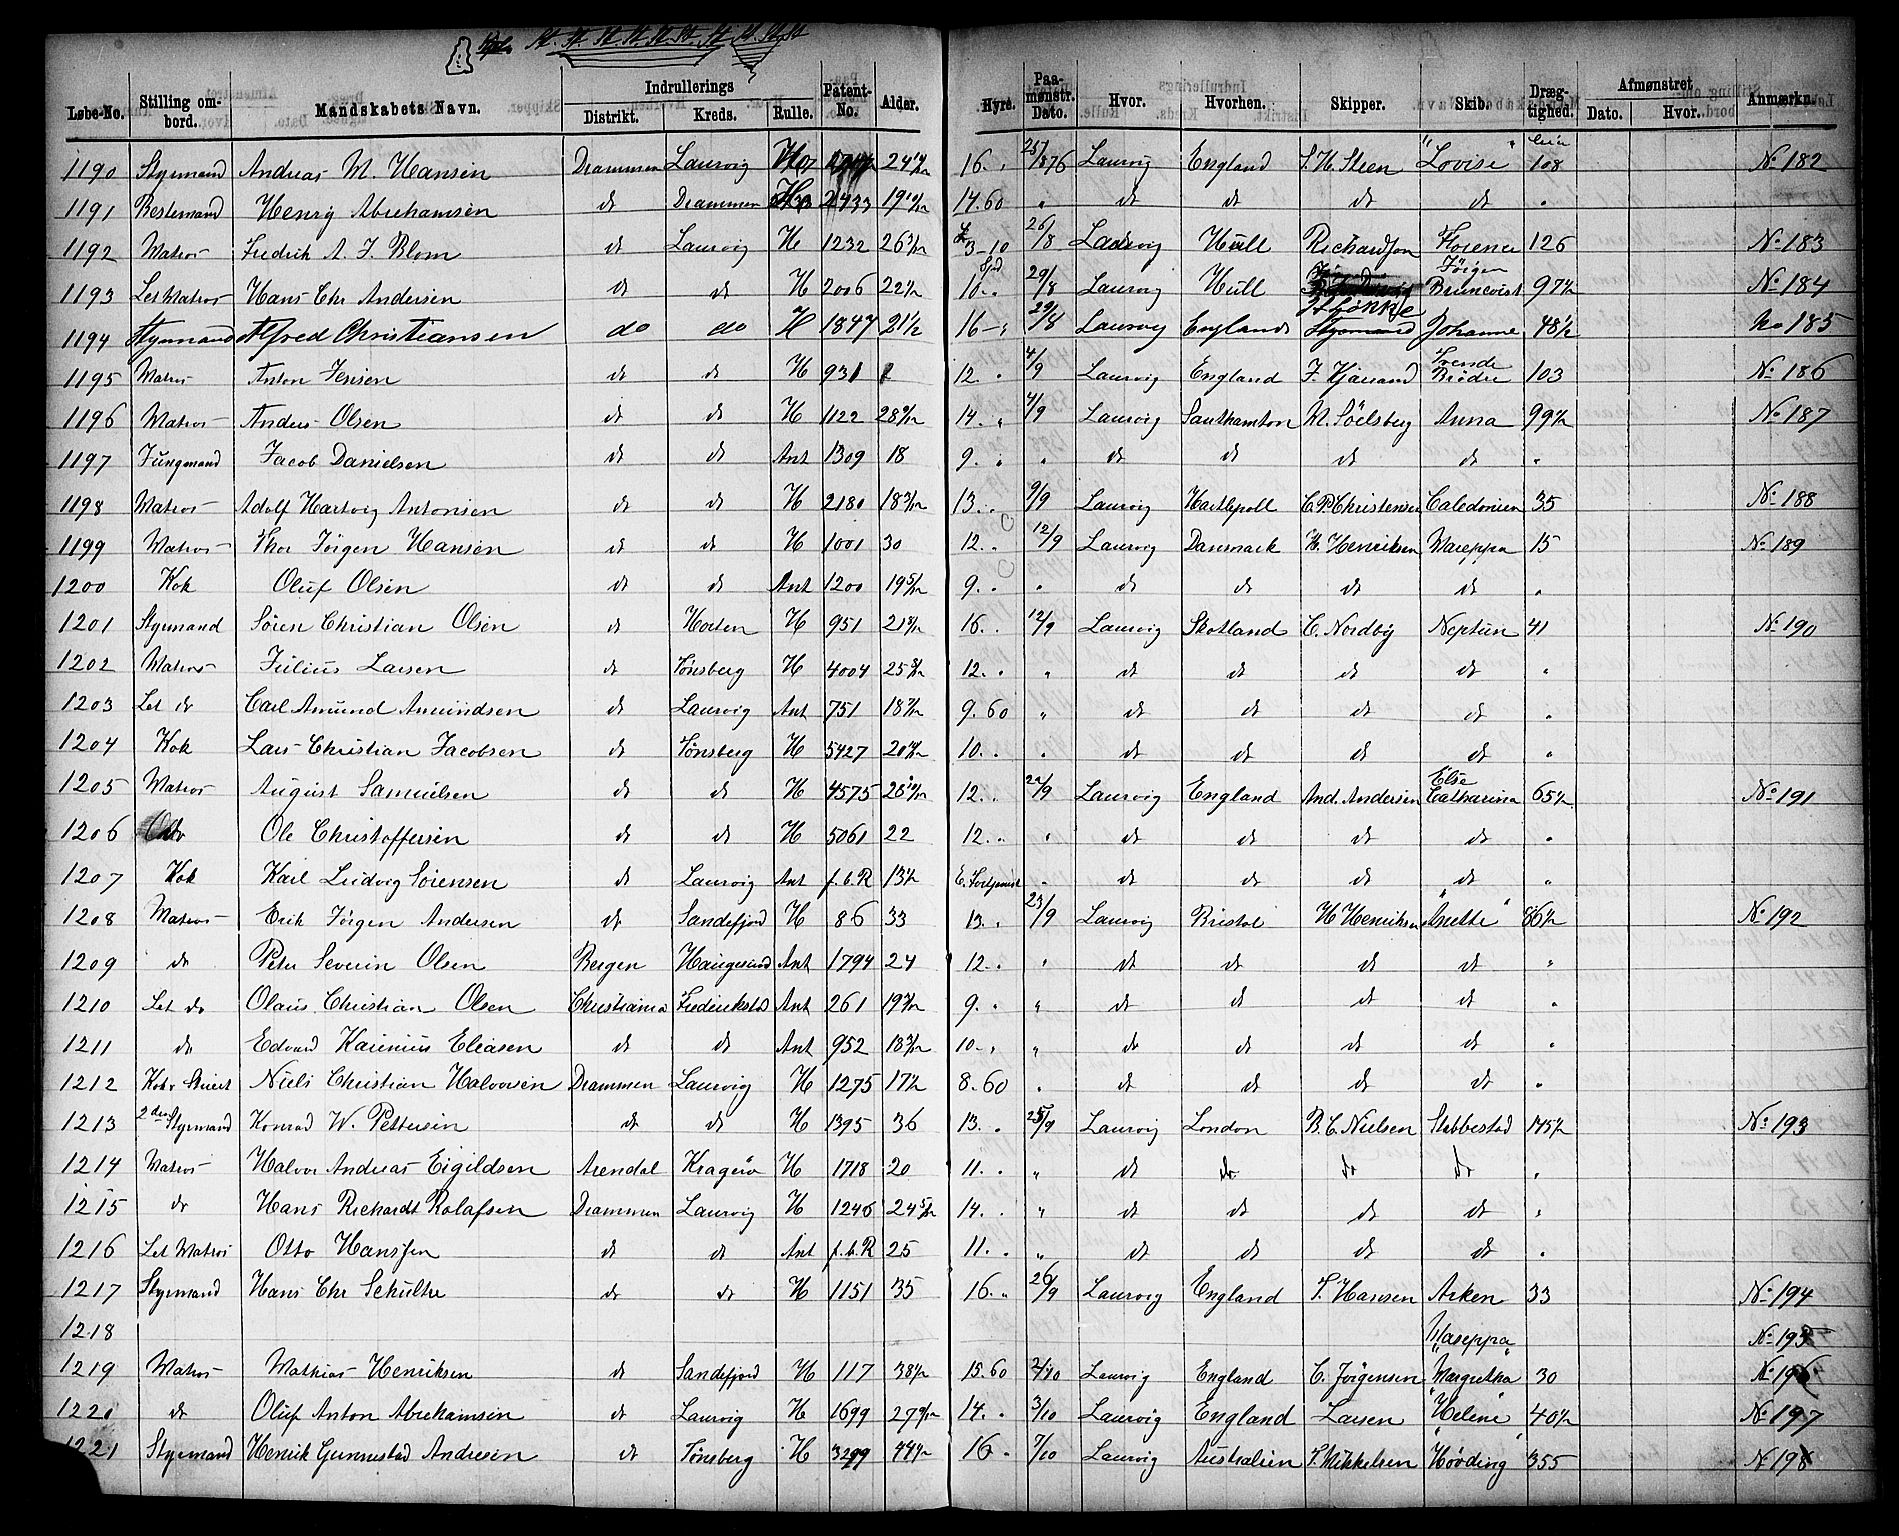 Løbe-No. Stilling ombord. Mandskabets Navn. Indrullerings Distrikt. Kreds. Rulle. Patent-No. Alder. Hyre. Paamønstr. Dato. Hvor. Hvorhen. Skipper. Skib. Drægtighed. Afmønstret Dato. Hvor. Anmærkn.
1190 Styrmand Andreas M. Hansen Drammen Laurvig 16. 25/8 76 Laurvig England S. H. Steen "Lovise" 108 No 182
1191 Bestemand Henrig Abrahamsen do Drammen 2433 19 14.60 " do do do do "
1192 Matros Fredrik A. J. Blom do Laurvig H 1232 26 3/12 £3-10 26/8 Laurvig Hull Richardson Florence 126 No 183
1193 Let Matros Hans Chr Andersen do do H 2006 22½ Spd 10.. 29/8 Laurvig Hull Jörgen Bruncvist 97½ No 184
1194 Styrmand Alfred Christiansen do do H 1847 21½ 16-" 29/8 Laurvig England Styrmand Johanne 48½ No 185
1195 Matros Anton Jensen do do H 931 12. " 4/9 Laurvig England F. Kjärrand Svende Brödre 103 No 186
1196 Matros Anders Olsen do do H 1122 28 14. " 4/9 Laurvig Southamton M. Söelsberg Anna 99½ No 187
1197 Jungmand Jacob Danielsen do do Ant 1309 18 9. " " do do do do "
1198 Matros Adolf Hartvig Antonsen do do H 2180 18 3/12 13.. 9/9 Laurvig Hartlepoll C. P. Christensen Caledonien 35 No 188
1199 Matros Thor Jörgen Hansen do do H 1001 30 12. " 12/9 Laurvig Danmark H. Henriksen Mareppa 15 No 189
1200 Kok Oluf Olsen do do Ant 1200 19 5/12 9. " " do do do do "
1201 Styrmand Sören Christian Olsen do Horten H 951 21 16.. 12/9 Laurvig Skotland C. Nordby Neptun 41 No 190
1202 Matros Julius Larsen do Tönsberg H 4004 25 12. " " do do do do "
1203 Let do Carl Amund Amundsen do Laurvig Ant 751 18 9.60 " do do do do "
1204 Kok Lars Christian Jacobsen do Tönsberg H 5427 20 10.. " do do do do "
1205 Matros August Samuelsen do do H 4575 12.. 22/9 Laurvig England And. Andersen Else Catharina 65½ No 191
1206 do Ole Christoffersen do do H 5061 22 12.. " do do do do "
1207 Kok Karl Ludvig Sörensen do Laurvig Ant f.b.R 13½ " do do do do "
1208 Matros Erik Jörgen Andersen do Sandefjord H 86 33 13. " 23/9 Laurvig Bristol H Henriksen "Anette" 86½ No 192
1209 do Peter Severin Olsen Bergen Haugesund Ant 1794 24 12.. " do do do do "
1210 Let do Olaus Christian Olsen Christiania Frederikstad Ant 261 19 9. " " do do do do "
1211 do Edvard Karinius Eliasen do do Ant 952 18 10-" " do do do do "
1212 Kok & Stuert Niels Christian Halvorsen Drammen Laurvig H 1275 17½ 8.60 " do do do do "
1213 2den Styrmand Konrad W. Pettersen do do H 1395 36 13. " 25/9 Laurvig London B. C. Nielsen Stabbestad 145½ No 193
1214 Matros Halvor Andreas Eigildsen Arendal Kragerö H 1718 20 11.. " do do do do "
1215 do Hans Richardt Rolafsen Drammen Laurvig H 1246 24 5/12 14. " " do do do do "
1216 Let Matros Otto Hanssen do do Ant f.b.R 25 11. " " do do do do "
1217 Styrmand Hans Chr Schultze do do H 1151 35 16. " 26/9 Laurvig England S. Hansen Arken 33 No 194
1218 "Mareppa" No 195
1219 Matros Mathias Henriksen do Sandefjord H 117 38½ 15.60 2/10 Laurvig England C. Jörgensen Margretha 30 No 196
1220 do Oluf Anton Abrahamsen do Laurvig H 1699 27 14. " 3/10 Laurvig England Larsen "Helene" 40½ No 197
1221 Styrmand Henrik Gunnestad Andresen do Tönsberg H 3299 44½ 16 " 7/10 Laurvig Australien S. Mikkelsen "Hövding" 355 No 198